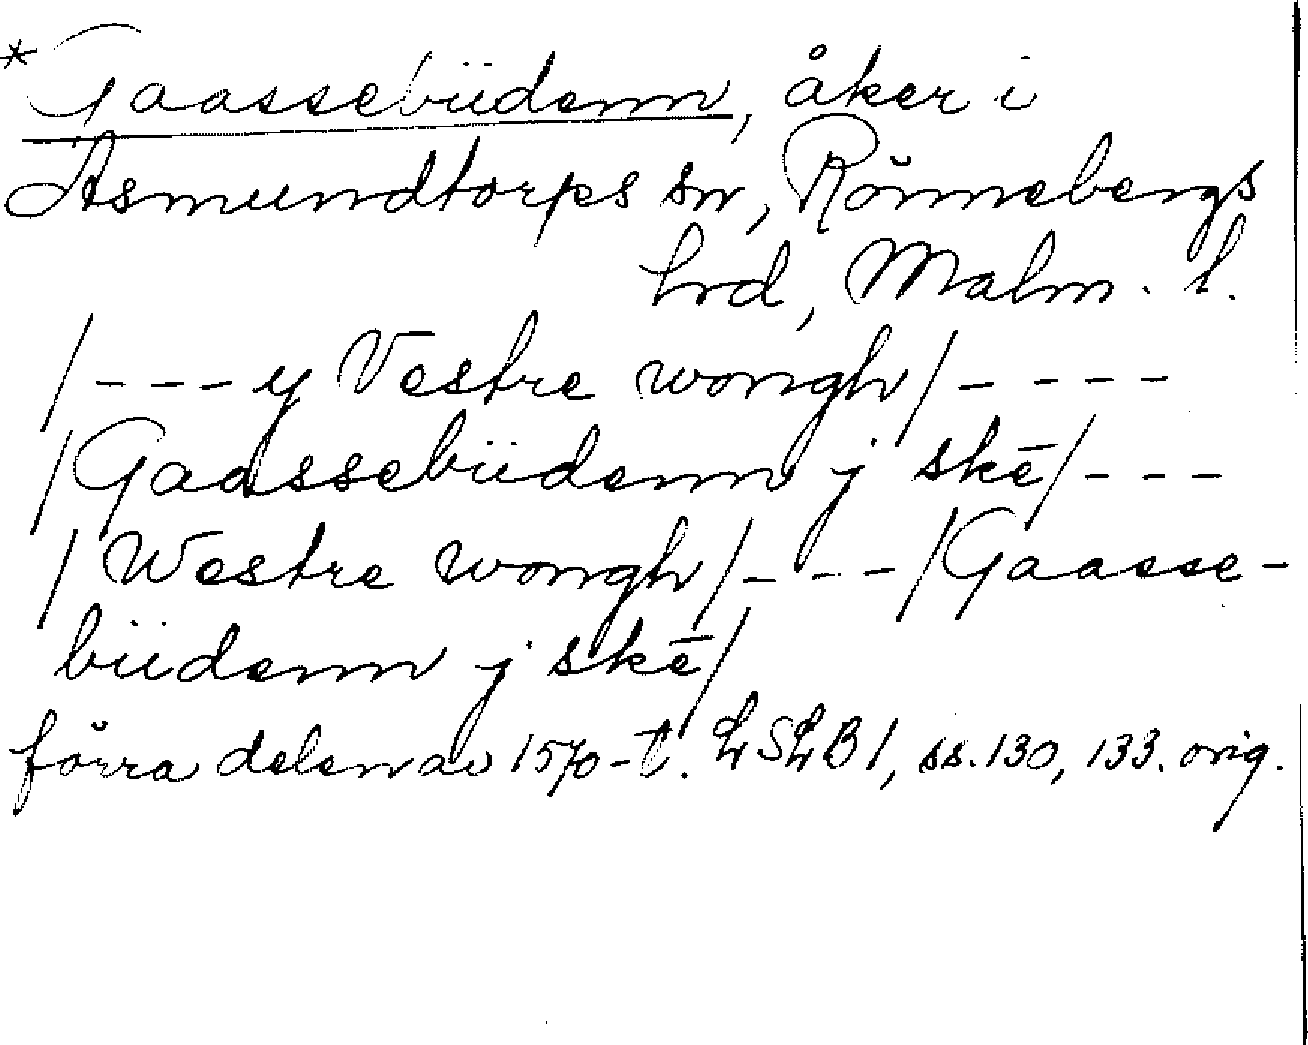 *Gaassebüdenn, åker i
Asmundtorps sn, Rönnebergs
hrd, Malm. l.
/---y Vestre wongh/----
/Gaassebüdenn j skē/---
/Westre wongh/---/Gaasse-
büdenn j skē/
förra delen av 1570-t. LSLB 1, ss. 130, 133. orig.